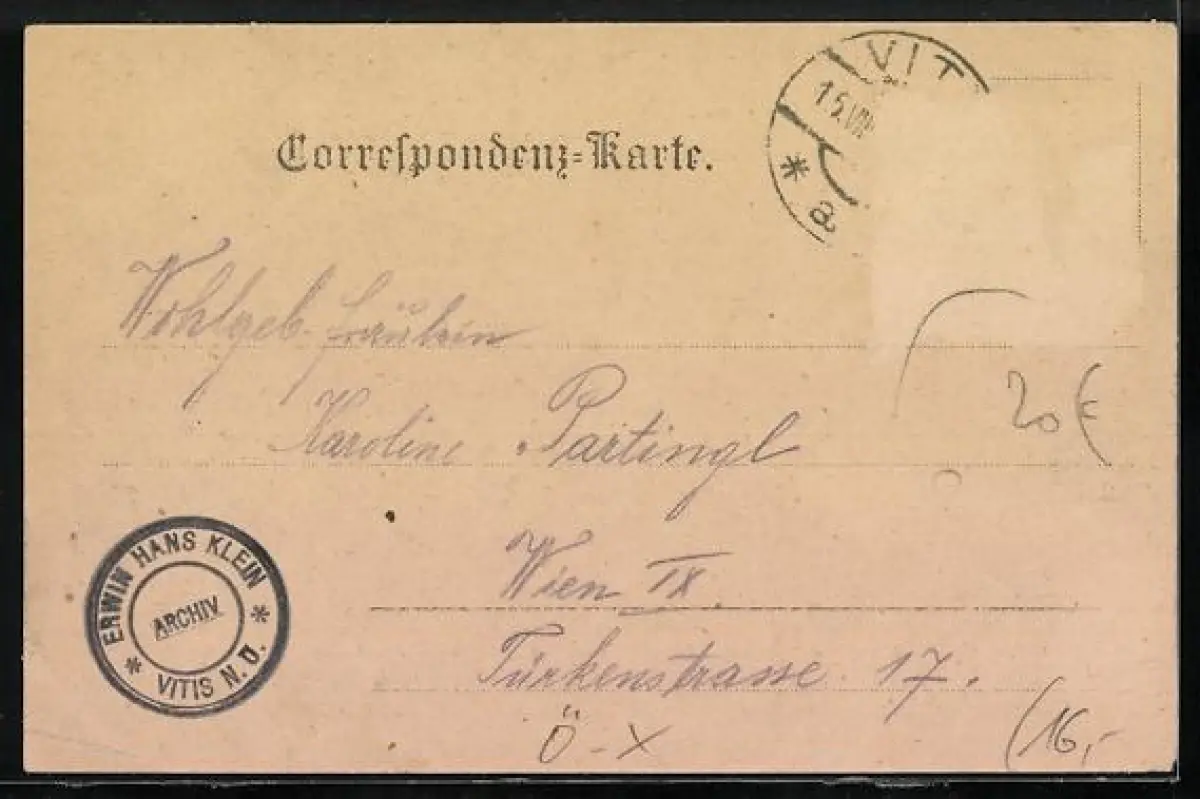 Correspondenz-Karte.
VIT
15.VIII
* a
Wohlgeb. Fräulein
Karoline Partingl
20 €
Wien IX.
Türkenstrasse 17.
ERWIN HANS KLEIN
ARCHIV
* VITIS N.Ö. *
Ö-X
(16,-